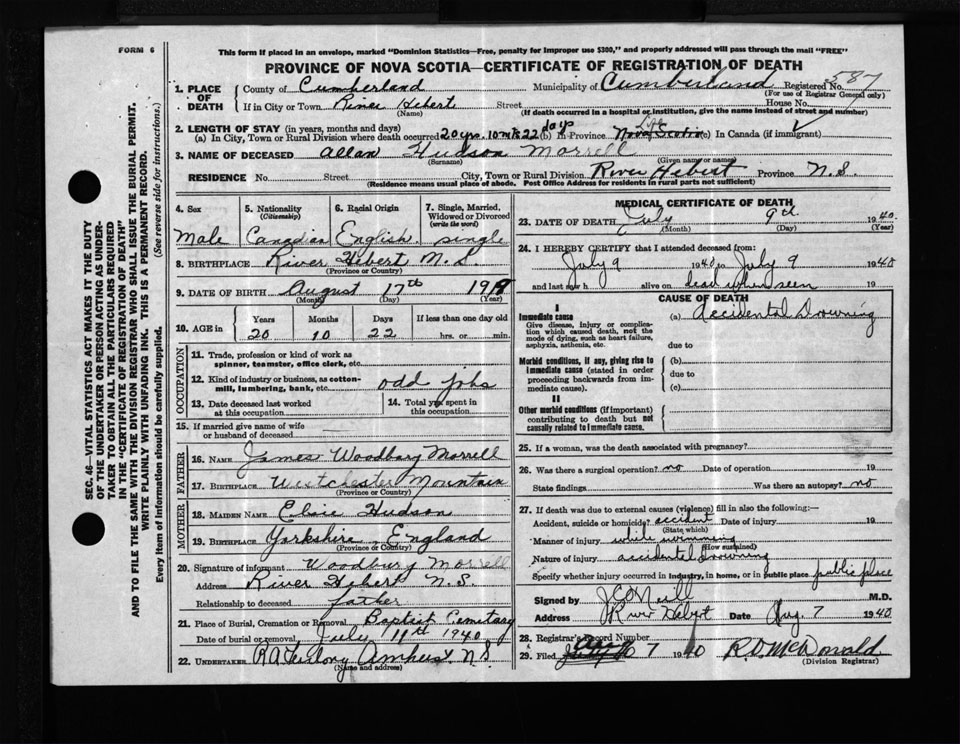 FORM 6
This form if placed in an envelope, marked "Dominion Statistics—Free, penalty for improper use $300," and properly addressed will pass through the mail "FREE"
PROVINCE OF NOVA SCOTIA—CERTIFICATE OF REGISTRATION OF DEATH
1. PLACE OF DEATH County of Cumberland Municipality of Cumberland Registered No. 587
(For use of Registrar General only)
If in City or Town River Hebert Street House No.
(Name) (If death occurred in a hospital or institution, give the name instead of street and number)
2. LENGTH OF STAY (in years, months and days)
(a) In City, Town or Rural Division where death occurred 20 yrs. 10 mths 22 days (b) In Province Life Nova Scotia (c) In Canada (if immigrant)
3. NAME OF DECEASED Allan Hudson Morrell
(Surname) (Given name or names)
RESIDENCE No. Street City, Town or Rural Division River Hebert Province N.S.
(Residence means usual place of abode. Post Office Address for residents in rural parts not sufficient)
4. Sex 5. Nationality (Citizenship) 6. Racial Origin 7. Single, Married, Widowed or Divorced (write the word)
Male Canadian English. single
8. BIRTHPLACE River Hebert N.S.
(Province or Country)
9. DATE OF BIRTH August 17th 1919
(Month) (Day) (Year)
10. AGE in Years Months Days If less than one day old
20 10 22 hrs. or min.
OCCUPATION
11. Trade, profession or kind of work as spinner, teamster, office clerk, etc.
12. Kind of industry or business, as cotton-mill, lumbering, bank, etc. odd jobs
13. Date deceased last worked at this occupation 14. Total yrs spent in this occupation
15. If married give name of wife or husband of deceased
FATHER
16. NAME James Woodbury Morrell
17. BIRTHPLACE Westchester Mountain
(Province or Country)
MOTHER
18. MAIDEN NAME Elsie Hudson
19. BIRTHPLACE Yorkshire, England
(Province or Country)
20. Signature of informant Woodbury Morrell
Address River Hebert N.S.
Relationship to deceased father
21. Place of Burial, Cremation or Removal Baptist Cemetary
Date of burial or removal July 11th 1940
22. UNDERTAKER Amherst. N S
(Name and address)
MEDICAL CERTIFICATE OF DEATH
23. DATE OF DEATH July 9th 1940.
(Month) (Day) (Year)
24. I HEREBY CERTIFY that I attended deceased from:
July 9 1940 to July 9 1940
and last saw h alive on dead when seen 19
CAUSE OF DEATH
I
Immediate cause (a) Accidental Drowning
Give disease, injury or complication which caused death, not the mode of dying, such as heart failure, asphyxia, asthenia, etc.
due to
Morbid conditions, if any, giving rise to immediate cause (stated in order proceeding backwards from immediate cause). (b)
due to
(c)
II
Other morbid conditions (if important) contributing to death but not causally related to immediate cause.
25. If a woman, was the death associated with pregnancy?
26. Was there a surgical operation? no Date of operation 19
State findings Was there an autopsy? no
27. If death was due to external causes (violence) fill in also the following:—
Accident, suicide or homicide? accident Date of injury 19
(State which)
Manner of injury while swimming
(How sustained)
Nature of injury accidental drowning
Specify whether injury occurred in industry, in home, or in public place public place
Signed by M.D.
Address River Hebert Date Aug. 7 1940
28. Registrar's Record Number
29. Filed Aug 7 1940 R.D. McDonald
(Division Registrar)
SEC. 46—VITAL STATISTICS ACT MAKES IT THE DUTY OF THE UNDERTAKER OR PERSON ACTING AS UNDERTAKER TO OBTAIN ALL THE PARTICULARS REQUIRED IN THE "CERTIFICATE OF REGISTRATION OF DEATH"
AND TO FILE THE SAME WITH THE DIVISION REGISTRAR WHO SHALL ISSUE THE BURIAL PERMIT.
WRITE PLAINLY WITH UNFADING INK. THIS IS A PERMANENT RECORD.
Every item of information should be carefully supplied. (See reverse side for instructions.)